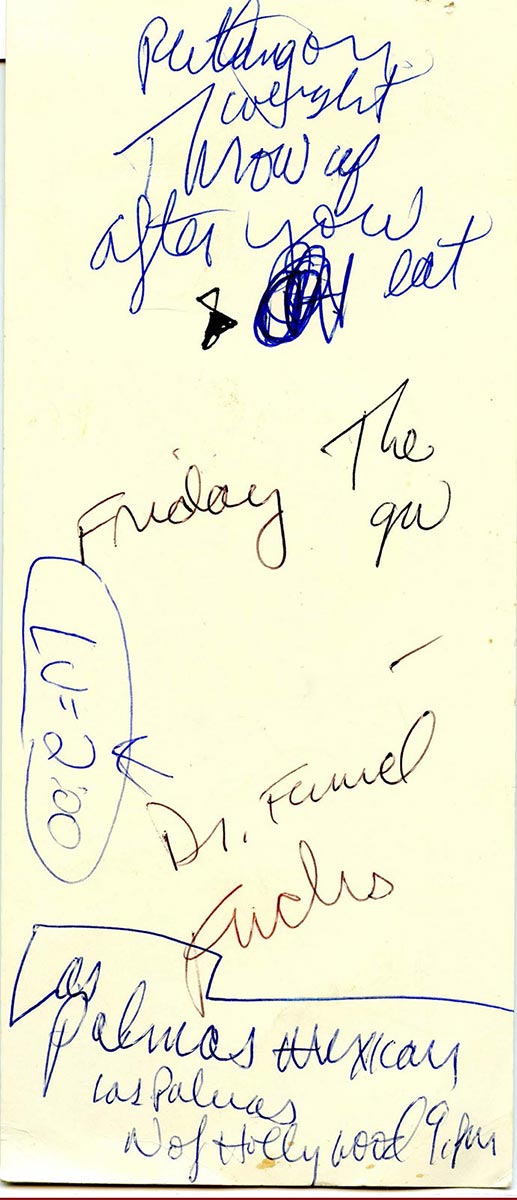 Putting on
weight
Throw up
after you
eat
The
Friday
LV=2:00
Dr.
Fuchs
Las
Palmas Mexican
Las Palmas
N of Hollywood 9. pm